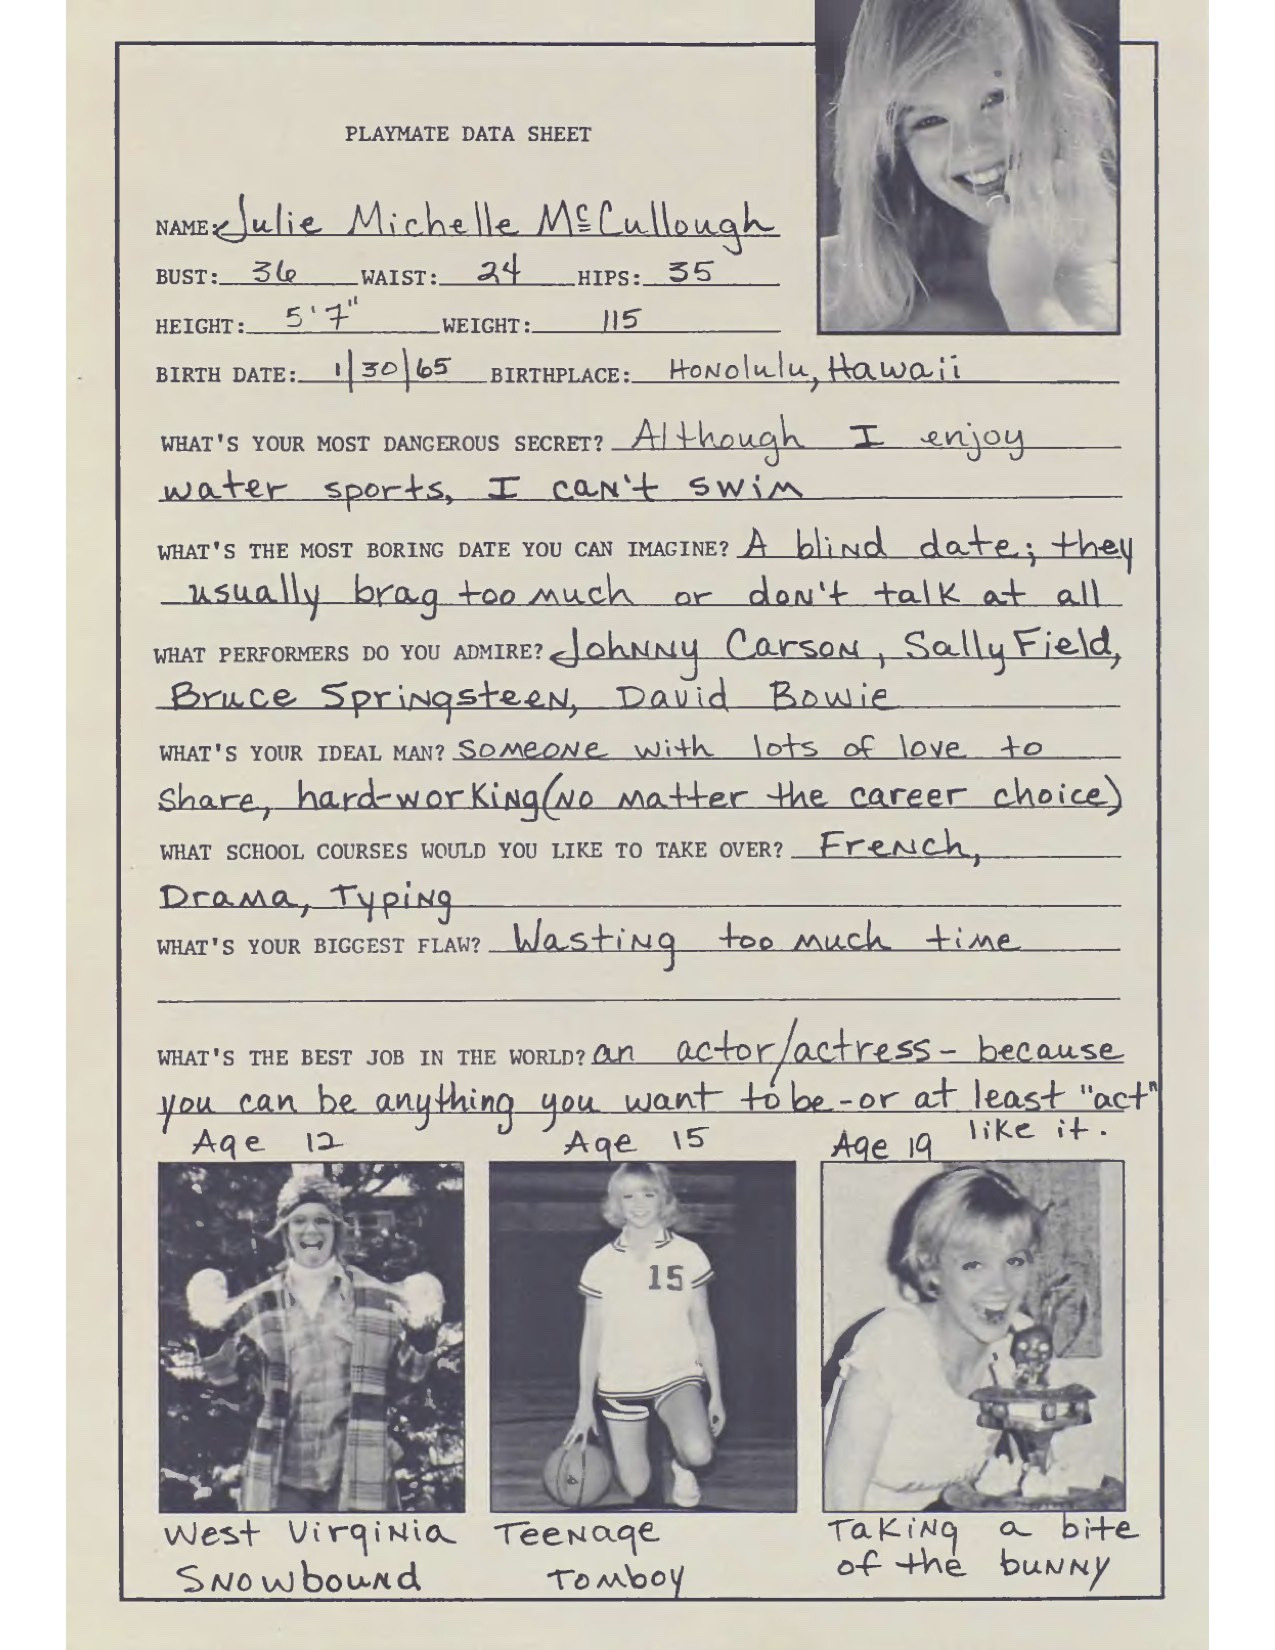 PLAYMATE DATA SHEET
NAME: Julie Michelle McCullough
BUST: 36 WAIST: 24 HIPS: 35
HEIGHT: 5'7" WEIGHT: 115
BIRTH DATE: 1/30/65 BIRTHPLACE: Honolulu, Hawaii
WHAT'S YOUR MOST DANGEROUS SECRET? Although I enjoy
water sports, I can't swim
WHAT'S THE MOST BORING DATE YOU CAN IMAGINE? A blind date; they
usually brag too much or don't talk at all
WHAT PERFORMERS DO YOU ADMIRE? Johnny Carson, Sally Field,
Bruce Springsteen, David Bowie
WHAT'S YOUR IDEAL MAN? Someone with lots of love to
share, hard-working (no matter the career choice)
WHAT SCHOOL COURSES WOULD YOU LIKE TO TAKE OVER? French,
Drama, Typing
WHAT'S YOUR BIGGEST FLAW? Wasting too much time
WHAT'S THE BEST JOB IN THE WORLD? an actor/actress - because
you can be anything you want to be - or at least "act"
like it.
Age 12 Age 15 Age 19
15
West Virginia Snowbound
Teenage Tomboy
Taking a bite of the bunny